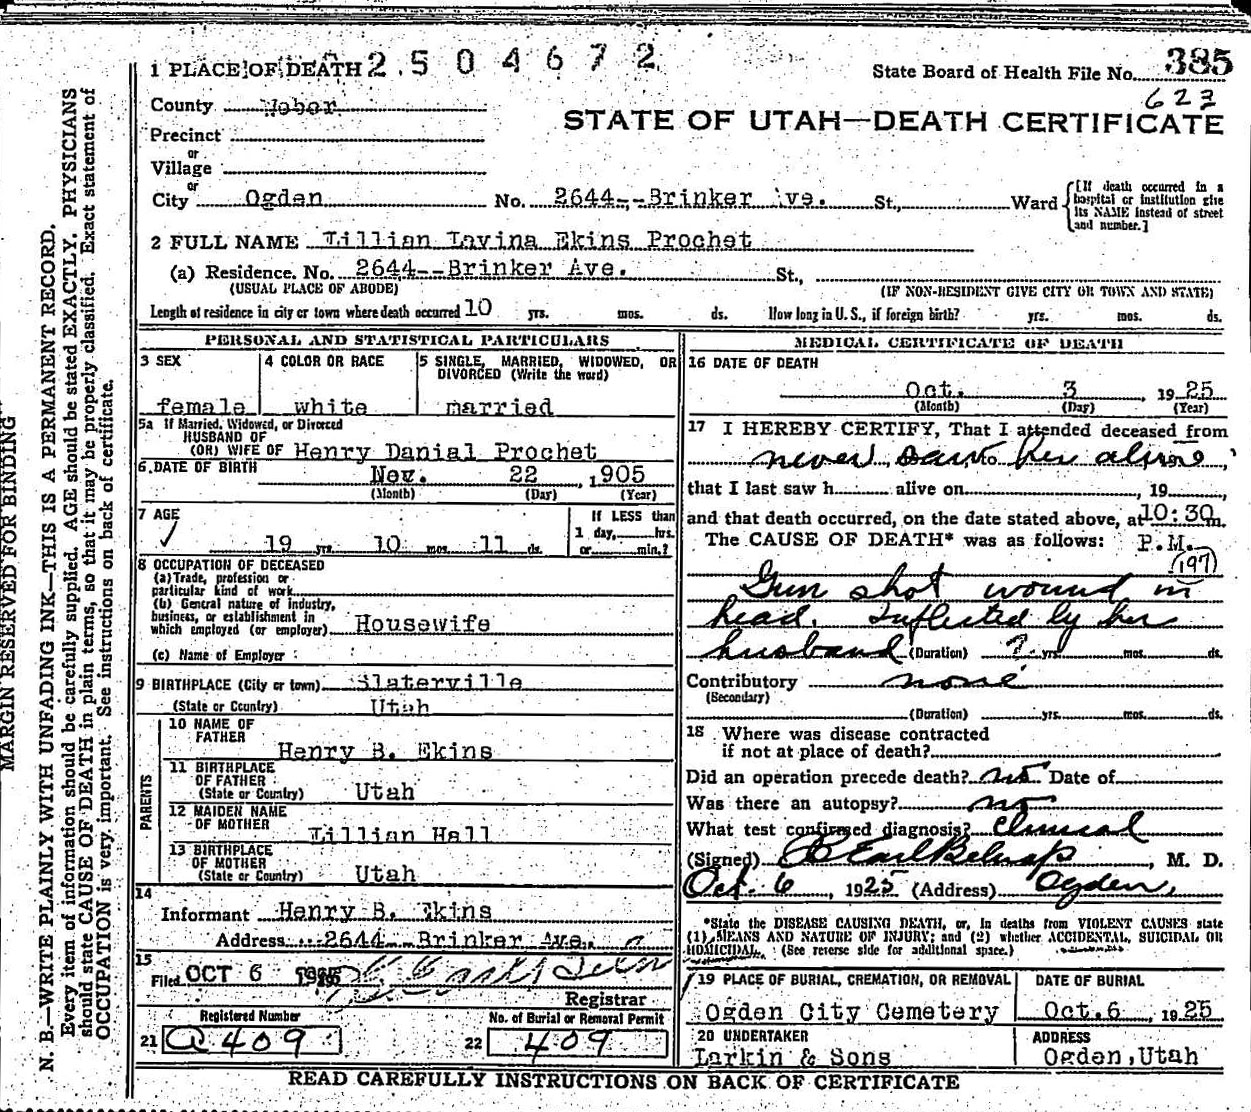 1 PLACE OF DEATH 2504672
State Board of Health File No. 385
County Weber
623
STATE OF UTAH—DEATH CERTIFICATE
Precinct
or
Village
or
City Ogden No. 2644--Brinker Ave. St., Ward
[If death occurred in a hospital or institution give its NAME instead of street and number.]
2 FULL NAME Lillian Lavina Ekins Prochet
(a) Residence. No. 2644--Brinker Ave. St.,
(USUAL PLACE OF ABODE) (IF NON-RESIDENT GIVE CITY OR TOWN AND STATE)
Length of residence in city or town where death occurred 10 yrs. mos. ds. How long in U. S., if foreign birth? yrs. mos. ds.
PERSONAL AND STATISTICAL PARTICULARS
3 SEX
female
4 COLOR OR RACE
white
5 SINGLE, MARRIED, WIDOWED, OR
DIVORCED (Write the word)
married
5a If Married, Widowed, or Divorced
HUSBAND OF
(OR) WIFE OF Henry Danial Prochet
6 DATE OF BIRTH Nov. 22, 1905
(Month) (Day) (Year)
7 AGE
✓ 19 yrs. 10 mos. 11 ds.
If LESS than
1 day, hrs.
or min.?
8 OCCUPATION OF DECEASED
(a) Trade, profession or
particular kind of work
(b) General nature of industry,
business, or establishment in
which employed (or employer) Housewife
(c) Name of Employer
9 BIRTHPLACE (City or town) Slaterville
(State or Country) Utah
PARENTS
10 NAME OF
FATHER
Henry B. Ekins
11 BIRTHPLACE
OF FATHER
(State or Country) Utah
12 MAIDEN NAME
OF MOTHER
Lillian Hall
13 BIRTHPLACE
OF MOTHER
(State or Country) Utah
14
Informant Henry B. Ekins
Address 2644--Brinker Ave.
15
Filed OCT 6 1925
Registrar
Registered Number
21 A409
No. of Burial or Removal Permit
22 409
MEDICAL CERTIFICATE OF DEATH
16 DATE OF DEATH
Oct. 3, 1925
(Month) (Day) (Year)
17 I HEREBY CERTIFY, That I attended deceased from
never saw to her alive,
that I last saw h alive on, 19,
and that death occurred, on the date stated above, at 10:30 m.
The CAUSE OF DEATH* was as follows: P.M.
(197)
Gun shot wound in
head. Inflicted by her
husband (Duration) ? yrs. mos. ds.
Contributory none
(Secondary)
(Duration) yrs. mos. ds.
18 Where was disease contracted
if not at place of death?
Did an operation precede death? no Date of
Was there an autopsy? no
What test confirmed diagnosis? Clinical
(Signed) Earl Belnap, M. D.
Oct. 6, 1925 (Address) Ogden,
*State the DISEASE CAUSING DEATH, or, in deaths from VIOLENT CAUSES state
(1) MEANS AND NATURE OF INJURY; and (2) whether ACCIDENTAL, SUICIDAL OR
HOMICIDAL. (See reverse side for additional space.)
19 PLACE OF BURIAL, CREMATION, OR REMOVAL
Ogden City Cemetery
DATE OF BURIAL
Oct.6, 1925
20 UNDERTAKER
Larkin & Sons
ADDRESS
Ogden,Utah
READ CAREFULLY INSTRUCTIONS ON BACK OF CERTIFICATE
MARGIN RESERVED FOR BINDING
N. B.—WRITE PLAINLY WITH UNFADING INK—THIS IS A PERMANENT RECORD.
Every item of information should be carefully supplied. AGE should be stated EXACTLY. PHYSICIANS
should state CAUSE OF DEATH in plain terms, so that it may be properly classified. Exact statement of
OCCUPATION is very important. See instructions on back of certificate.